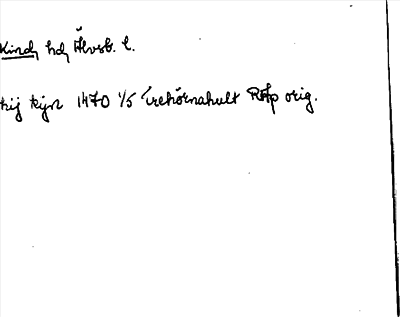 Kind hd Älvsb. l.
kij kijn 1470 1/5 Trehörnahult RAp orig.